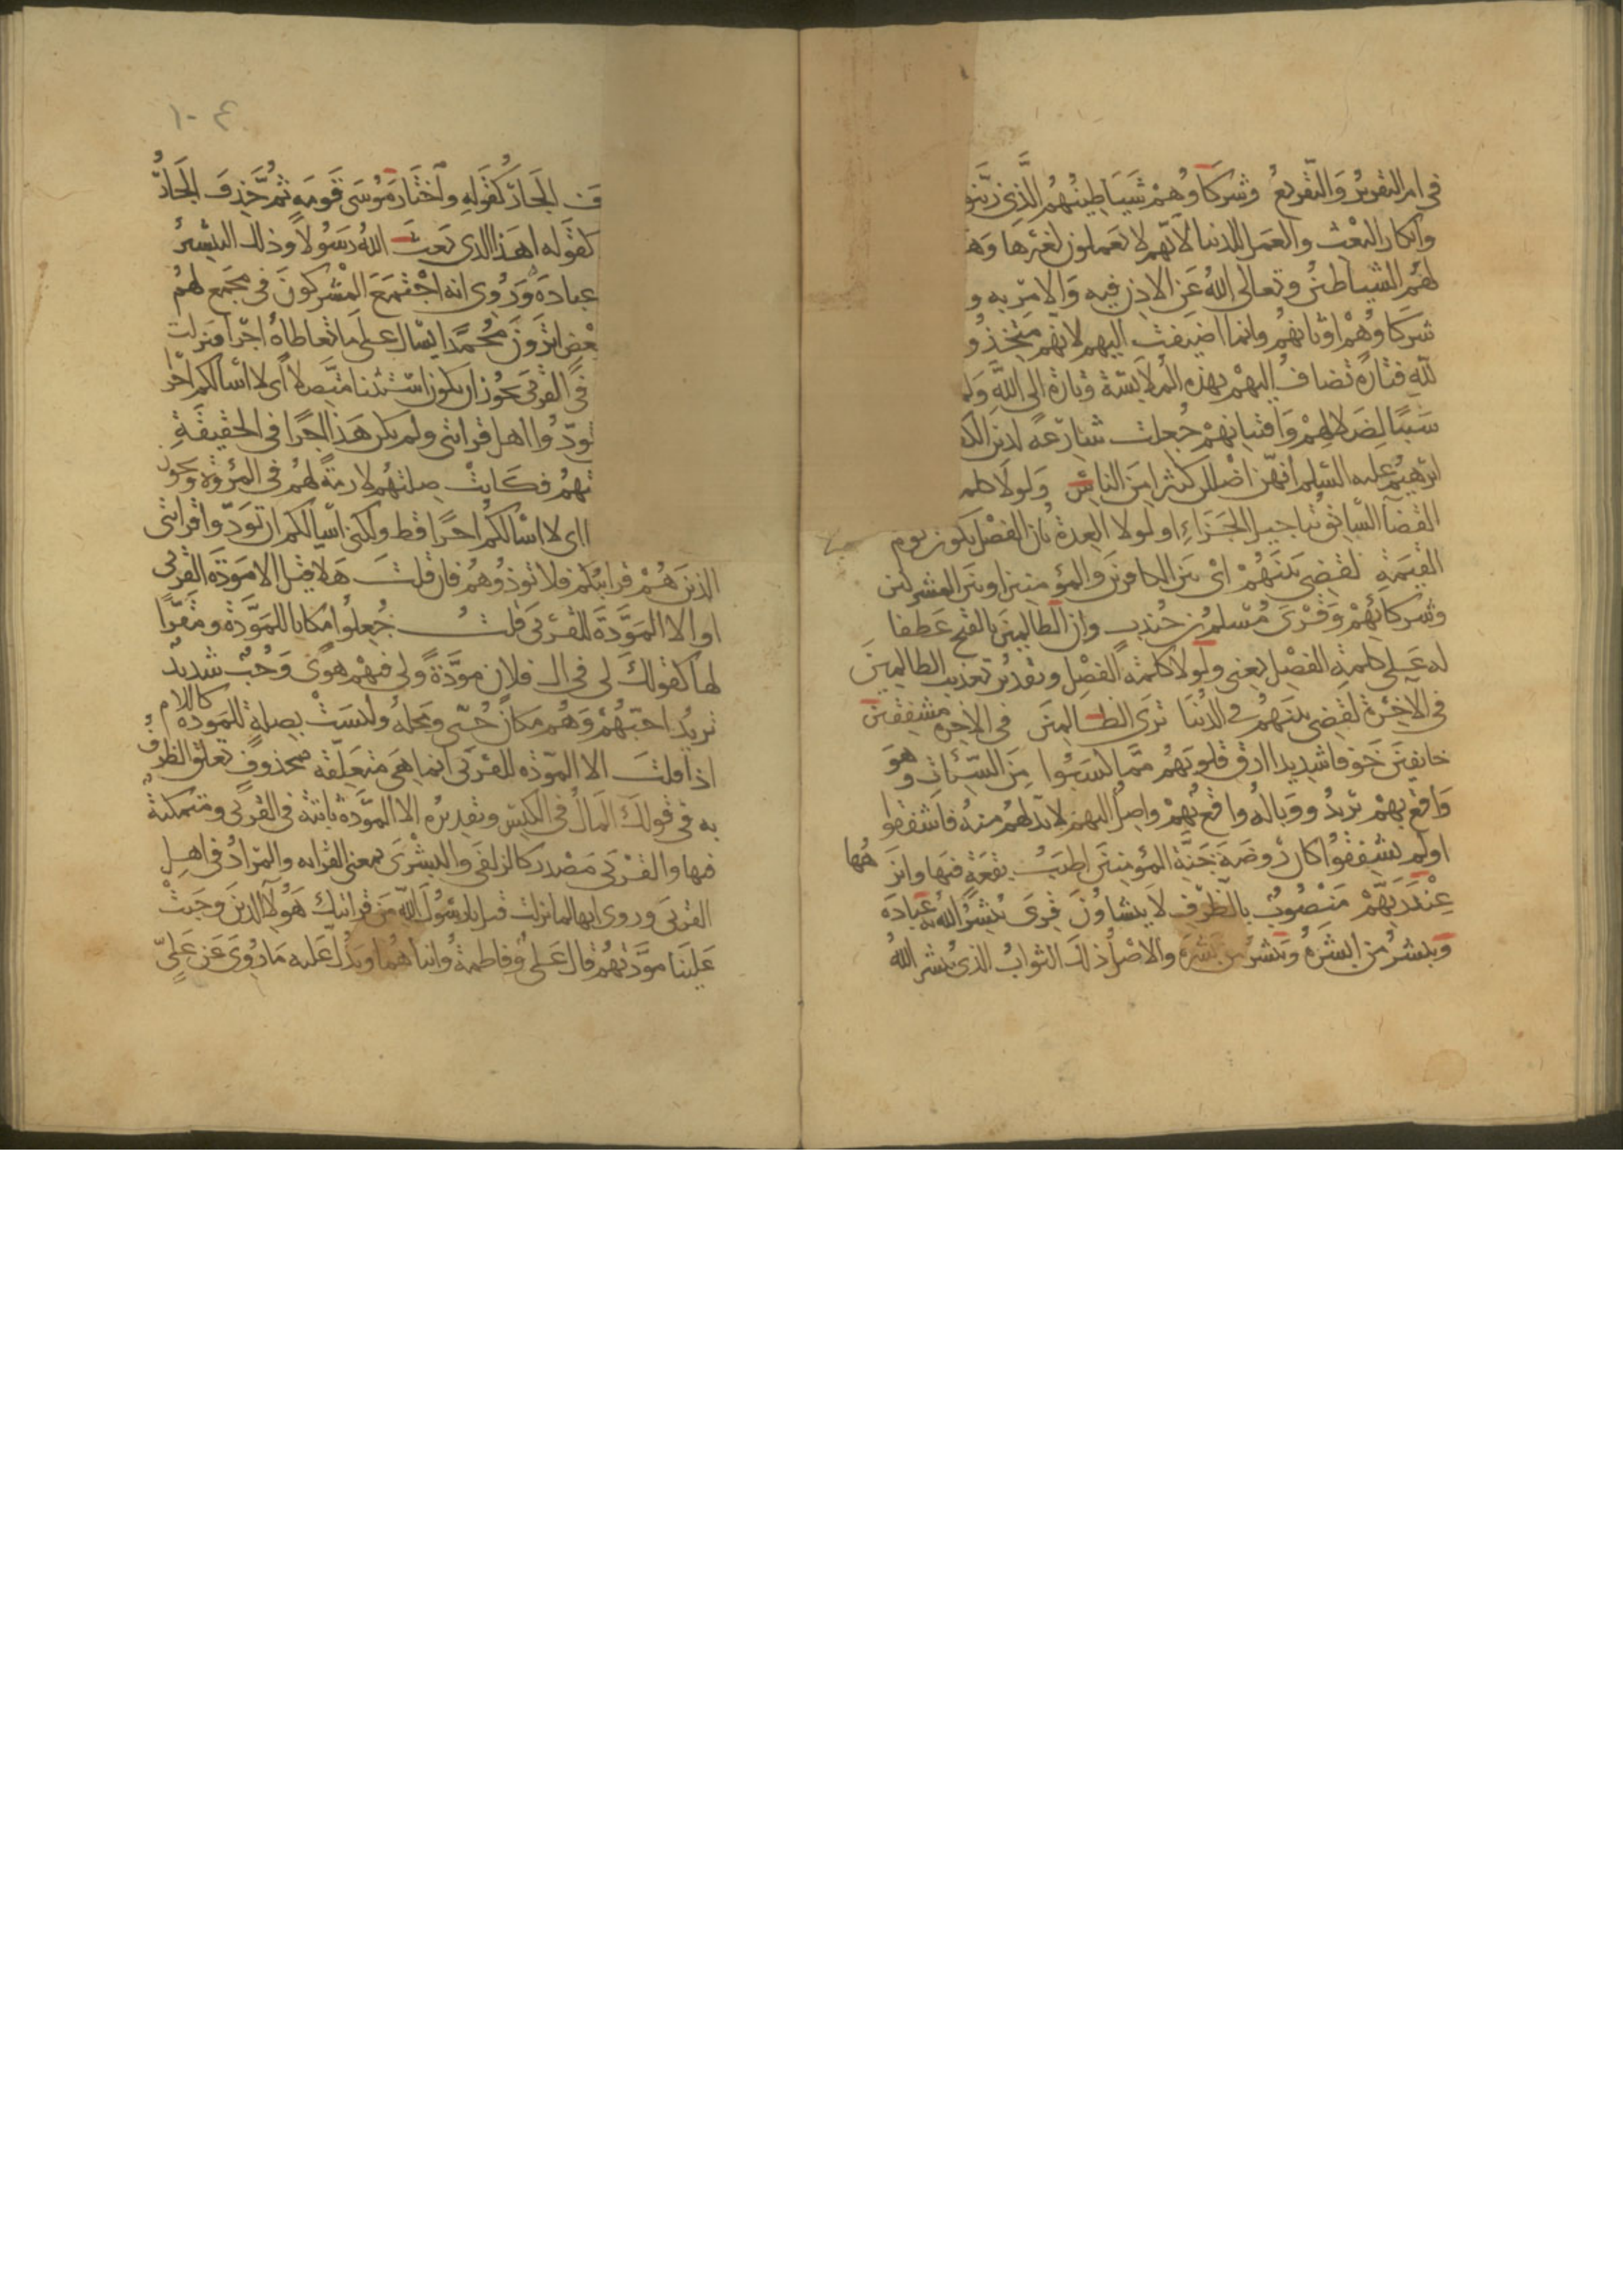 في ام التقرير والتقريع وشركاوهم شياطينهم الذي زينو
وانكار البعث والعمل للدنيا لانهم لا يعملون لغيرها وه
لهم الشياطين وتعالى الله عن الاذن فيه والامر به و
شركاوهم اوثانهم وانما اضيفت اليهم لانهم متخذو
لله فتارة تضاف اليهم بهذه الملابسة وتارة الى الله ول
سببا لضلالهم وافتتانهم جعلت شارعة لدين الك
ابرهيم عليه السلم انهن اضللن كثيرا من الناس ولولا كلمه
القضا السابق بتاجيل الجزاء او لولا العدة بان الفصل يكون يوم
القيمة لقضي بينهم اى بين الكافرين والمؤمنين او بين المشركين
وشركائهم وقرى مسلم بن جندب وان الظالمين بالفتح عطفا
له على كلمة الفصل يعنى ولولا كلمة الفصل وتقدير تعذيب الظالمين
في الآخرة لقضي بينهم في الدنيا ترى الظالمين في الاخره مشفقين
خائفين خوفا شديدا ارق قلوبهم مما كسبوا من السيئات وهو
واقع بهم يريد ووباله واقع بهم واصل اليهم لابد لهم منه اشفقوا
اولم يشفقوا كان روضة جنة المؤمنين اطيب بقعة فيها وانزهها
عند ربهم منصوب بالظرف لا يشاون قرى يبشر الله به عباده
ويبشر من ابشره ويبشر من بشره والاصل ذلك الثواب الذى يبشر الله
ف الجار كقوله واختار موسى قومه ثم حذف الجار
كقوله اهذا الذى بعث الله رسولا وذلك التبشير
عباده وروى انه اجتمع المشركون في مجمع لهم
بعض اترون محمدا يسال على ما تعاطاه اجرا فنزلت
في القربى يجوز ان يكون استثنا متصلا اى لا اسالكم اجرا
تودوا اهل قرابتي ولم يكن هذا اجرا في الحقيقة
بتهم فكانت صلتهم لازمة لهم في المروة ويجوز
ااى لا اسالكم اجرا قط ولكنى اسالكم ان تودوا قرابتى
الذين هم قرابتكم فلا توذوهم فان قلت هلا قيل الا مودة القربى
او الا المودة للقربى قلت جعلوا مكانا للمودة ومقرا
لها كقولك لى في ال فلان مودة ولى فيهم هوى وحب شديد
تريد احبهم وهم مكان حبى ومحله وليست بصلة للمودة كاللام
اذا قلت الا المودة للقربى انما هى متعلقة بمحذوف تعلق الظرف
به في قولك المال في الكيس وتقديره الا المودة ثابتة في القربى ومتمكنة
فيها والقربى مصدر كالزلفى والبشرى بمعنى القرابه والمراد في اهل
القربى وروى انها لما نزلت قيل يا رسول الله من قرابتك هؤلا الذين وجبت
علينا مودتهم قال على وفاطمة وابناهما ويدل عليه ما روى عن على